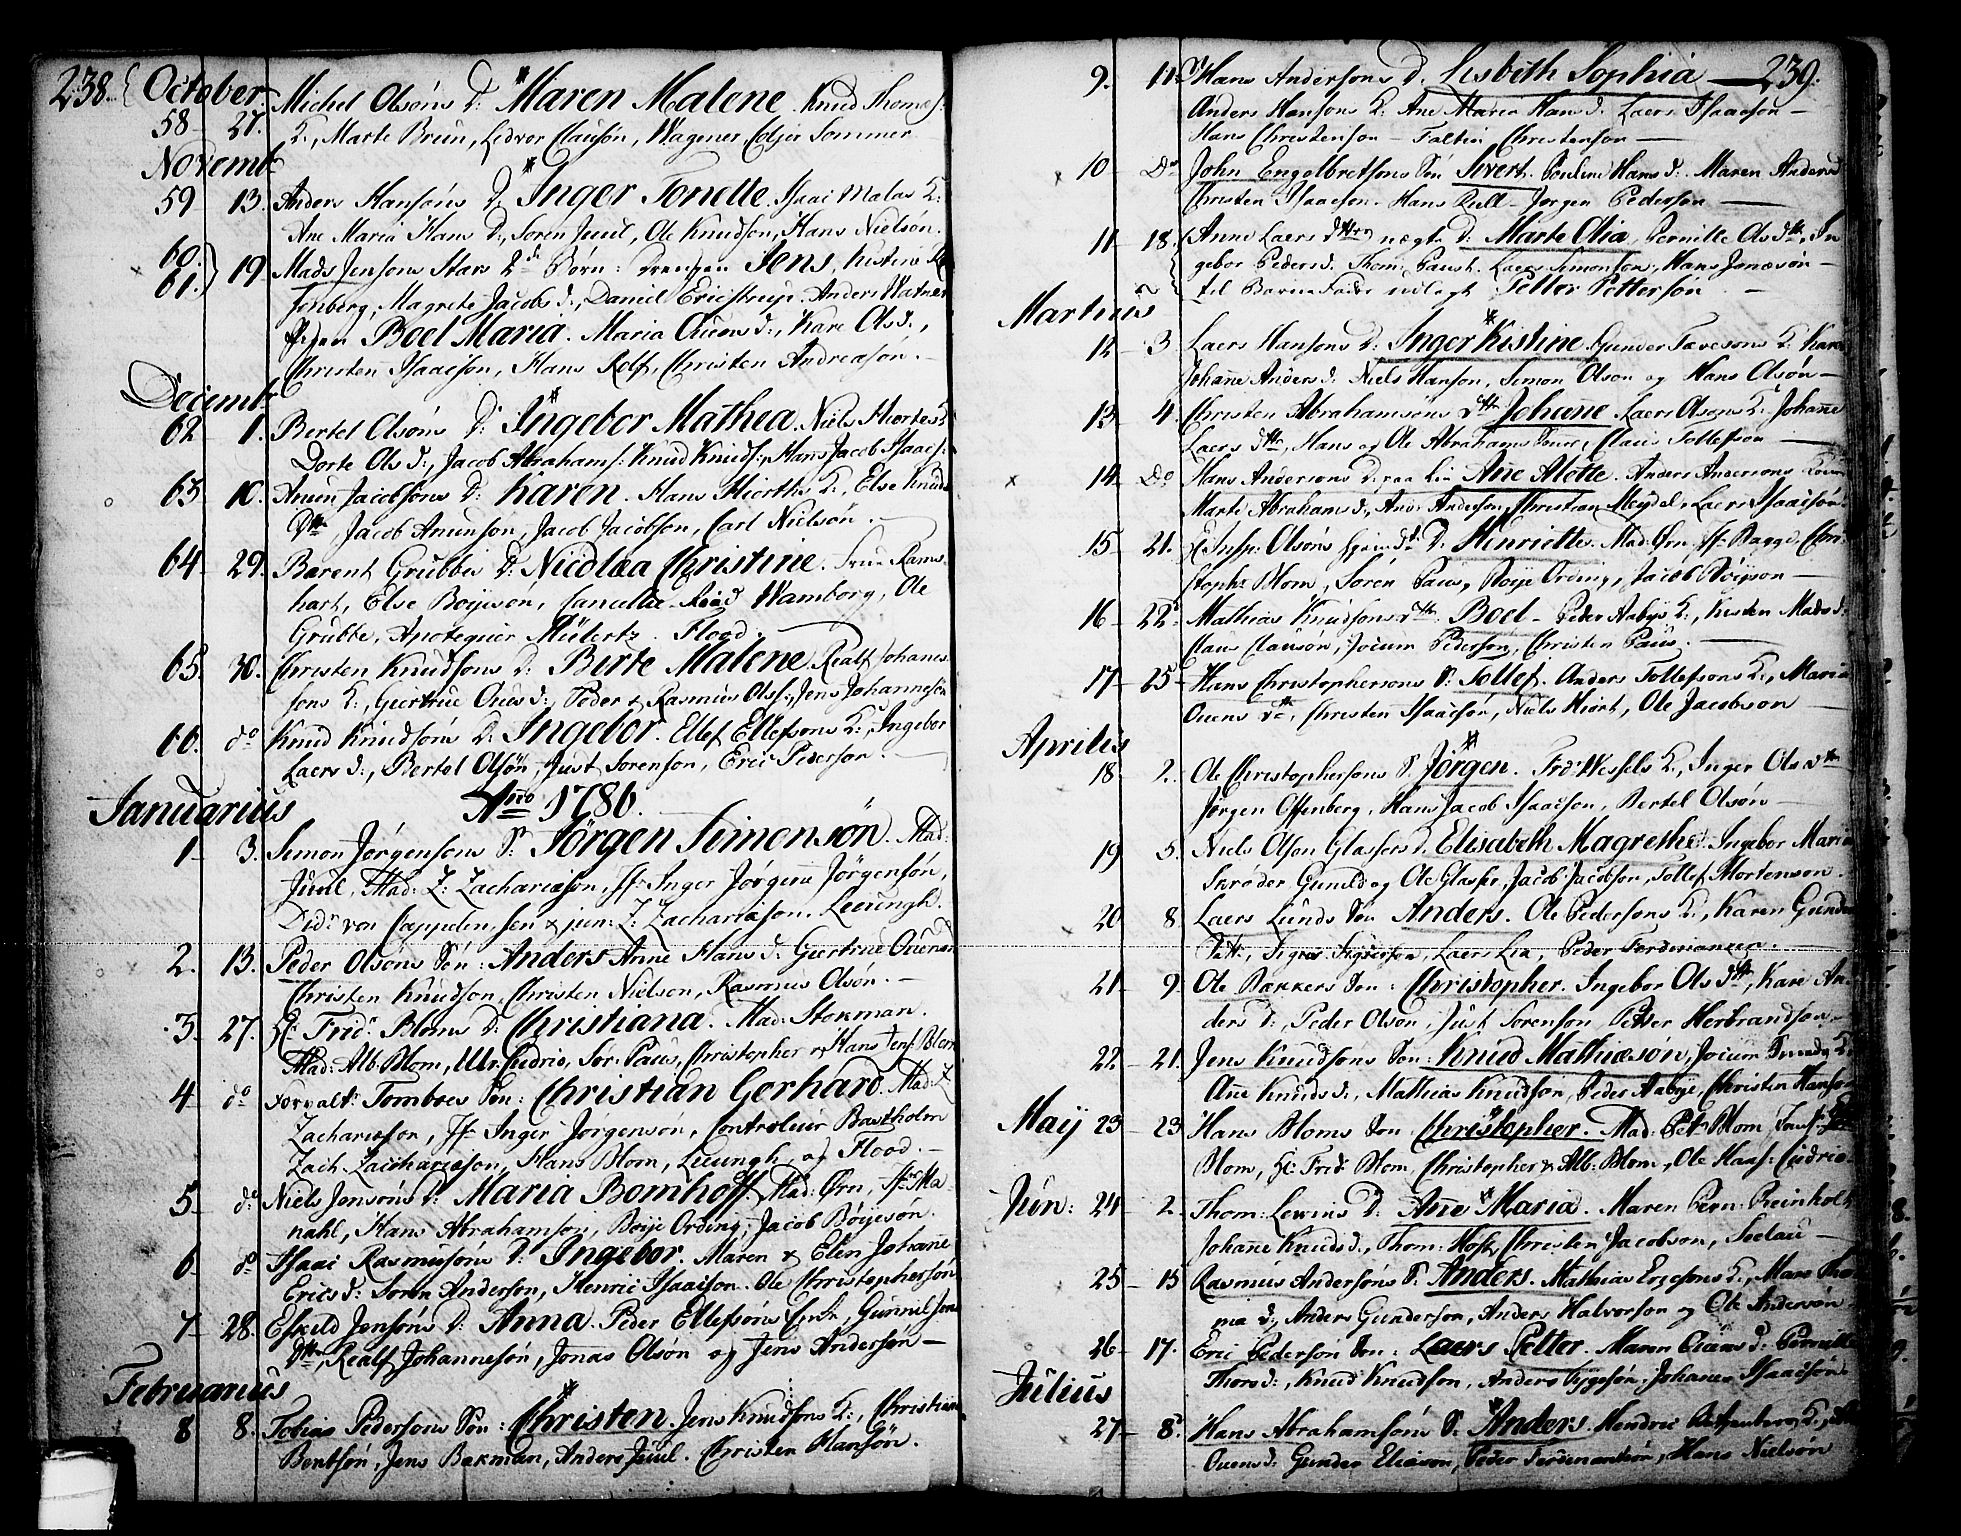 238. October
58 27. Michel Olsöns D: Maren Malene. Knud Thomess:
K:, Marte Bruun, Ledvor Clauson, Wagener, Colsen Sommer
Novemb:
59 13. Anders Hansöns D: Inger Tonette. Isaac Malas K:
Ane Maria Hans D:, Sören Juul, Ole Knudson, Hans Nielsön.
60. 61. 19. Mads Jensons Stars 2de Börn: Drengen Jens, Kistine
fenberg, Magrete Jacobs d:, Daniel Ericstrup, Anders Watner
Pigen Boel Maria. Maria Ouens d:, Kare Ols d:,
Christen Isaacson, Hans Rolf, Christen Andreasön.
Decemb:
62 1. Bertel Olsöns D: Ingebor Mathea. Niels Hiortes K
Dorte Ols d:, Jacob Abrahams: Knud Knuds:, Hans Jacob Isaacs:
63 10. Amun Jacobsöns D: Karen. Hans Hiorths K:, Else Knuds
Dtr, Jacob Amunson, Jacob Jacobson, Carl Nielsön.
64 29. Barent Grubbes D: Nicolæa Christine. Frue Rams
hart, Else Boÿesön, Cancellie Raad Wamborg, Ole
Grubbe, Apotequer Mülertz. Flood.
65. 30. Christen Knudsöns D: Birte Malene. Realf Johanes
sons K:, Giertrue Oues d:, Peder & Rasmus Olss:, Jens Johannesön
66. do Knud Knudsöns D: Ingebor. Ellef Ellefsons K:, Ingebor
Laers d:, Bertel Olsön, Just Sorenson, Eric Pederson.
Januarius Ano 1786.
1 3. Simon Jörgensons S: Jörgen Simonsön. Mad:
Juul, Mad: Z: Zachariæson, Jfr Inger Jörgine Jörgensön,
Didr von Cappelen, sen & jun: Z: Zachariæson. Leeungh.
2. 13. Peder Olsons Sön: Anders Anne Hans d: Giertrue Ouens d
Christen Knudson, Christen Nielson, Rasmus Olsön.
3. 27. Hr Fridr Bloms D: Christiana. Mad: Stokman.
Mad: Alb. Blom, Ulr. Cudrio, Sör: Paus, Christopher & Hans Jens Blom
4 do Forvaltr Tombres Sön: Christian Gerhard. Mad: Z
Zachariæson, Jfr Inger Jörgensön, Controleur Bastholm
Zach. Zachariæson, Hans Blom, Leeungh, og Flood.
5 do Niels Jensöns D: Maria Bomhoff. Mad: Örn, Jfr Ma-
nahl, Hans Abrahamson, Boÿe Ording, Jacob Böÿesön.
6 do Isaac Rasmusöns D: Ingebor. Maren & Elen Johane
Erics d: Sören Andersön, Henric Isaacson. Ole Christophersön
7 28. Eskild Jensöns D: Anna. Peder Ellefsöns Enke, Gunnil Jens
Dtr, Realf Johannesön, Jonas Olsön og Jens Andersön
Februarius
8 8. Tobias Pedersons Sön: Christen. Jens Knudsöns K:, Christian
Bentsön, Jens Bakman, Anders Juul. Christen Hansön.
239.
9. 11. Hans Andersons D. Lisbeth Sophia
Anders Hansons K: Ane Maria Hans d: Laers Isaacson
Hans Christenson Faltin Christenson
10 Do John Engelbretsons Sön Sivert. Pouline Hans d: Maren Anders d
Christen Isaacson. Hans Rull Jörgen Pederson
11 18. Anne Laers dtr uægte D: Marte Olia, Pernille Ols dtr, In
gebor Peders d. Thom: Paust. Laers Simonson, Hans Jonæsön
til Barne Fader udlagt Petter Petterson
Martius
12 3 Laers Hansons D: Inger Kistine. Gunder Tavesons K: Karen
Johañe Anders d: Niels Hanson, Simon Olson og Hans Olsön
13 4. Christen Abrahamsöns dtr Johañe. Laers Olsons K: Johañe
Laers dtr, Hans og Ole Abrahams Sönner, Claus Tollefson
14 Do Hans Andersons D. paa Lin Ane Alette. Anders Andersons Kone
Marte Abrahams d:, Anders Anderson, Christian Meydel, Laers Isaacsön
15 21. Hr Insp: Olsöns hjem dt D: Henriette. Mad: Örn. Jfr Bagge, Chri
stoph: Blom, Sören Paus, Boÿe Ording, Jacob Böÿson
16 22 Mathias Knudsons dtr. Boel Peder Aabÿs K:, Kisten Mads d:
Claus Clausön, Jocum Pederson, Christen Paus.
17 25 Hans Christophersons S: Tollef. Anders Tollefsons K:, Maria
Ouens dtr, Christen Isaacson, Niels Hiort, Ole Jacobson
Aprilis
18 2. Ole Christophersons S. Jörgen. Frd: Wessels K:, Inger Ols dtr
Jörgen Offenberg, Hans Jacob Isaacson, Bertel Olsön
19 5. Niels Olson Glasers D: Elisabeth Magrethe. Ingebor Maria
Skröder Gunild og Ole Glaser, Jacob Jacobson, Tollef Mortenson.
20 8. Laers Lunds Sön Anders. Ole Pedersons K:, Karen Gunder
Datt:, Sigver Sigverson, Laers Lia, Peder Ferdenansen.
21 9. Ole Bakkers Sön: Christopher. Ingebor Ols dtr, Kare An
ders d:, Peder Olson, Just Sorenson, Petter Herbrandson
22 21. Jens Knudsöns Sön: Knud Mathiæsön, Jocum K:
Añe Knuds d:, Mathias Knudson, Peder Aabÿe, Christen Hanson
Maij 23 23 Hans Bloms Sön Christopher. Mad. Pet: Blom
Blom, Hr: Frid: Blom, Christopher & Alb: Blom, Ole Haas: Cudrio
Jun: 24 2. Thom: Lewins D: Añe Maria. Maren Pern: Reinholt
Johañe Knuds d:, Thom: Höst, Christen Jacobson, Seelau
25 15 Rasmus Andersöns S: Anders. Mathias Ericsons K:, Mare Tho
mæ d:, Anders Gunderson, Anders Halvorson og Ole Andersön
26 17. Eric Pederson Sön: Laers Petter. Maren Ouens d: Pernille
Thors d:, Knud Knudson, Anders Tygesön, Johanes Isaacsön
Julius
27 8. Hans Abrahamsöns S: Anders. Hendric K:,
Ouens d: Gunder Eliason, Peder Ferdenansön, Hans Nielsön